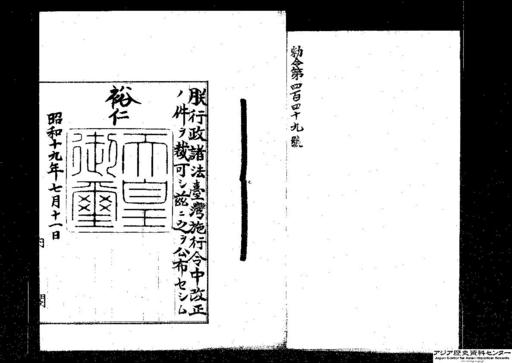 勅令第四百四十九號
朕行政諸法臺灣施行令中改正
ノ件ヲ裁可シ茲ニ之ヲ公布セシム
裕仁
天皇
御璽
昭和十九年七月十一日
内閣
アジア歴史資料センター
Japan Center for Asian Historical Records